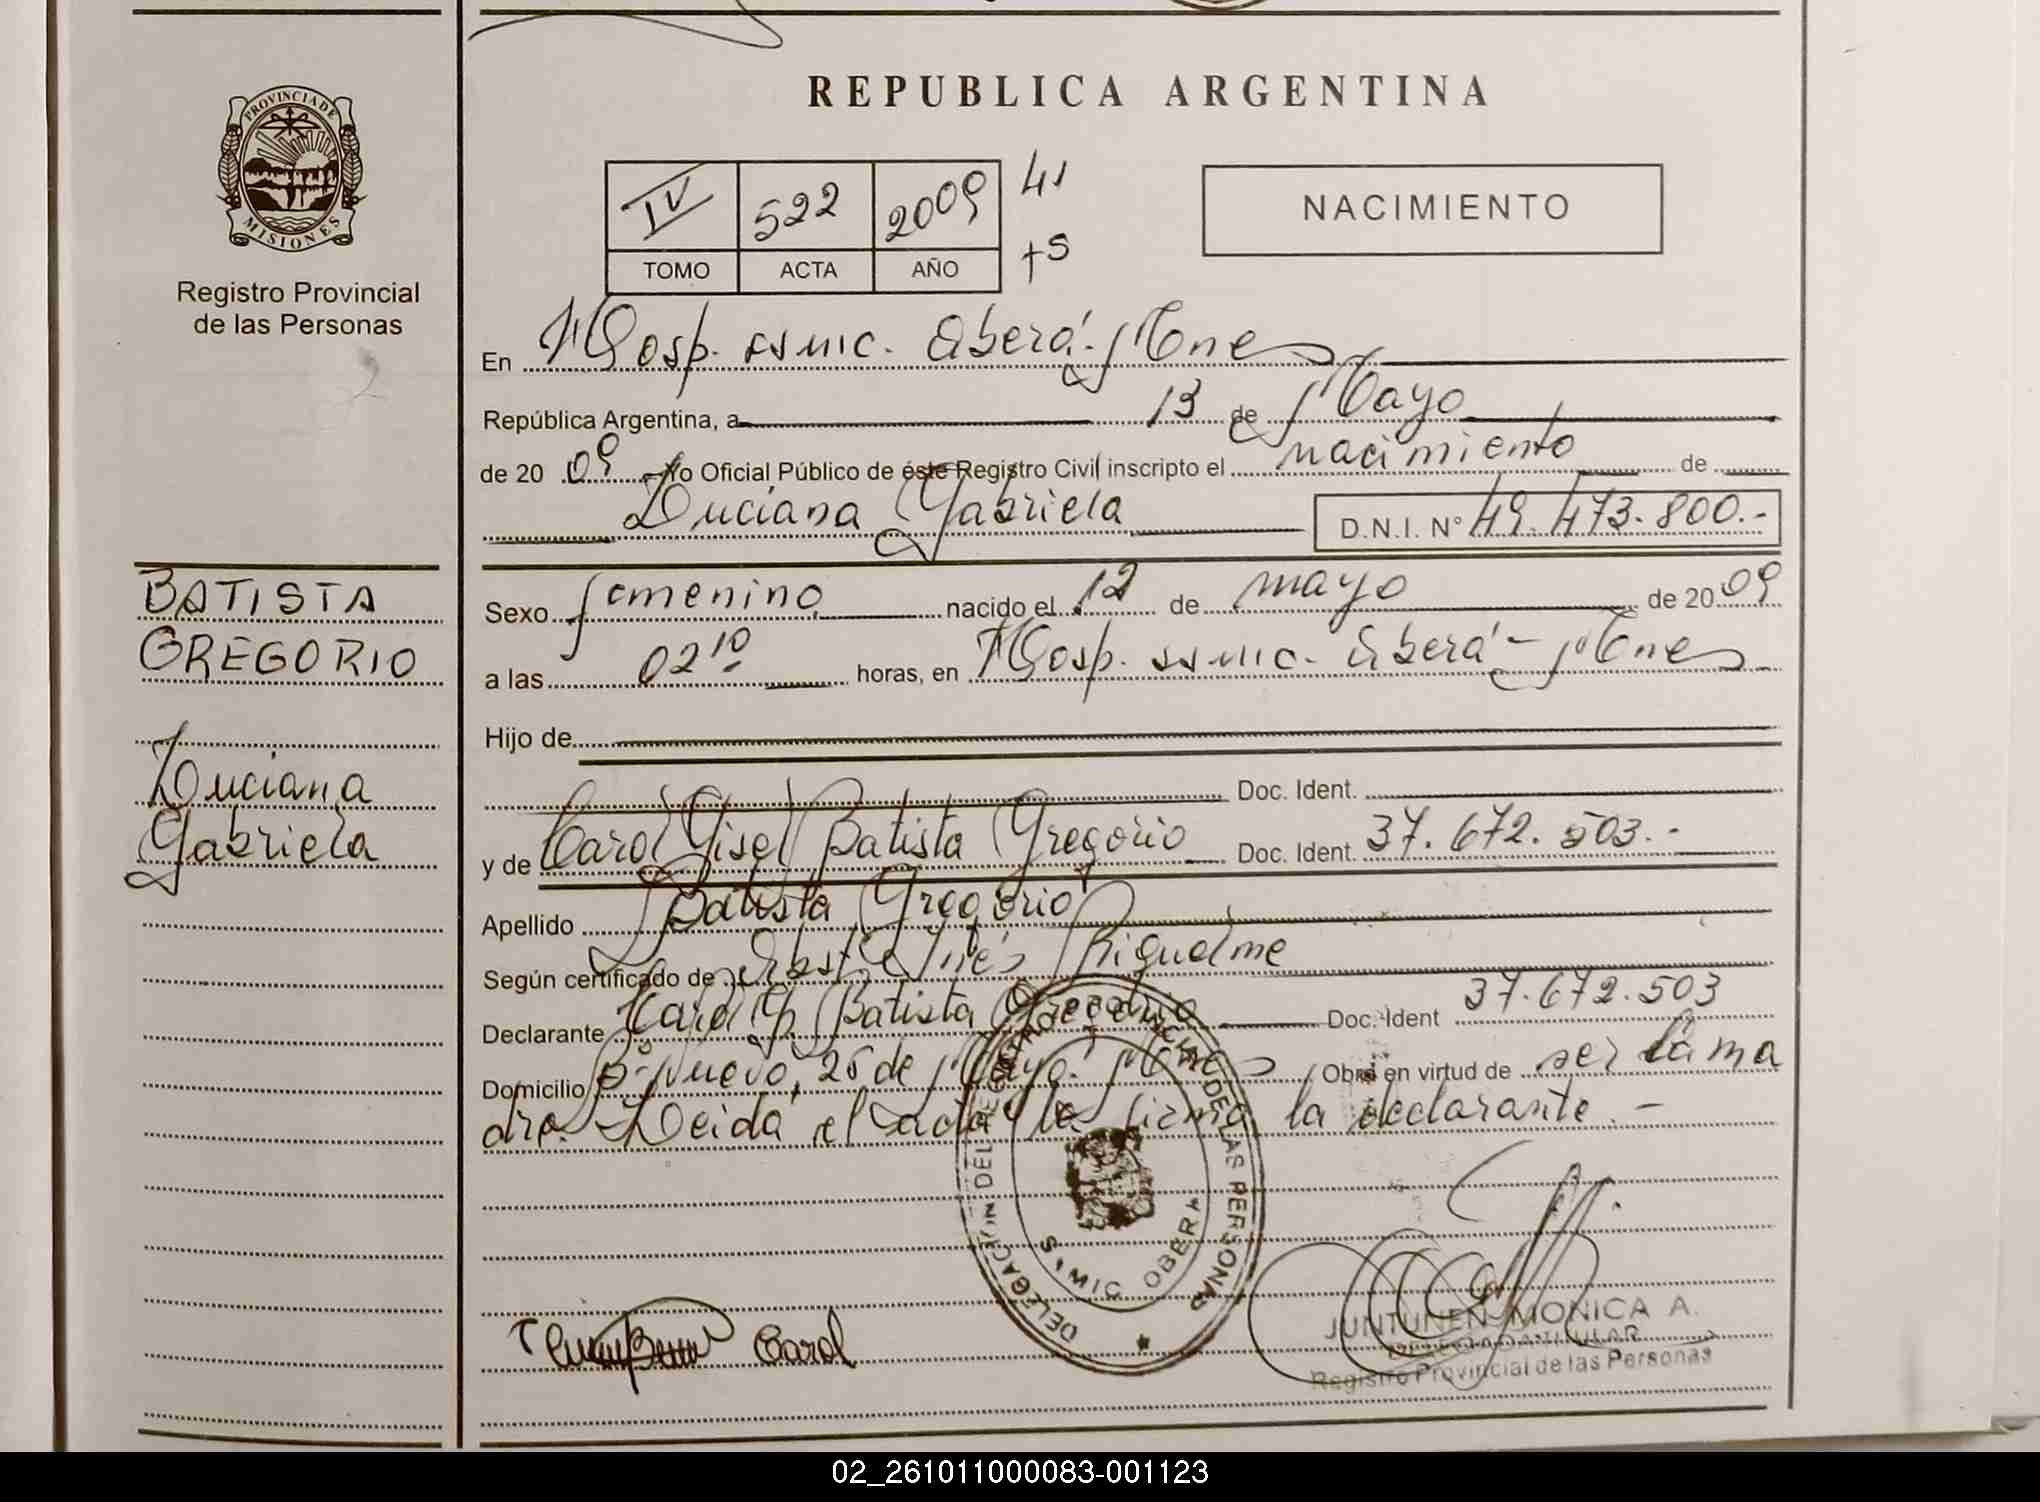 REPUBLICA ARGENTINA
PROVINCIA DE
MISIONES
Registro Provincial
de las Personas
IV 522 2009
TOMO ACTA AÑO
NACIMIENTO
En Hosp. ssmic. Oberá - Mnes
República Argentina, a 13 de Mayo
de 20 09 Yo Oficial Público de éste Registro Civil inscripto el nacimiento de
Luciana Gabriela D.N.I. Nº 49.473.800.-
BATISTA
GREGORIO
Luciana
Gabriela
Sexo femenino nacido el 12 de mayo de 20 09
a las 02 10 horas, en Hosp. ssmic. Oberá - Mnes
Hijo de
Doc. Ident.
y de Carol Gisel Batista Gregorio Doc. Ident. 37.672.503.-
Apellido Batista Gregorio
Según certificado de Obst. Inés Riquelme
Declarante Carol G. Batista Gregorio Doc. Ident 37.672.503
Domicilio Bº Nuevo, 25 de Mayo. Mnes Obra en virtud de ser la ma
dre. Leida el acta la firma la declarante. -
DELEGACION DEL REGISTRO PROVINCIAL DE LAS PERSONAS
OBERA
Carol
JUNTUNEN MONICA A.
DELEGADA TITULAR
Registro Provincial de las Personas
02_261011000083-001123